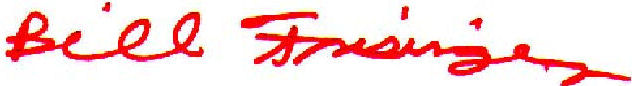 Bill Frisinger